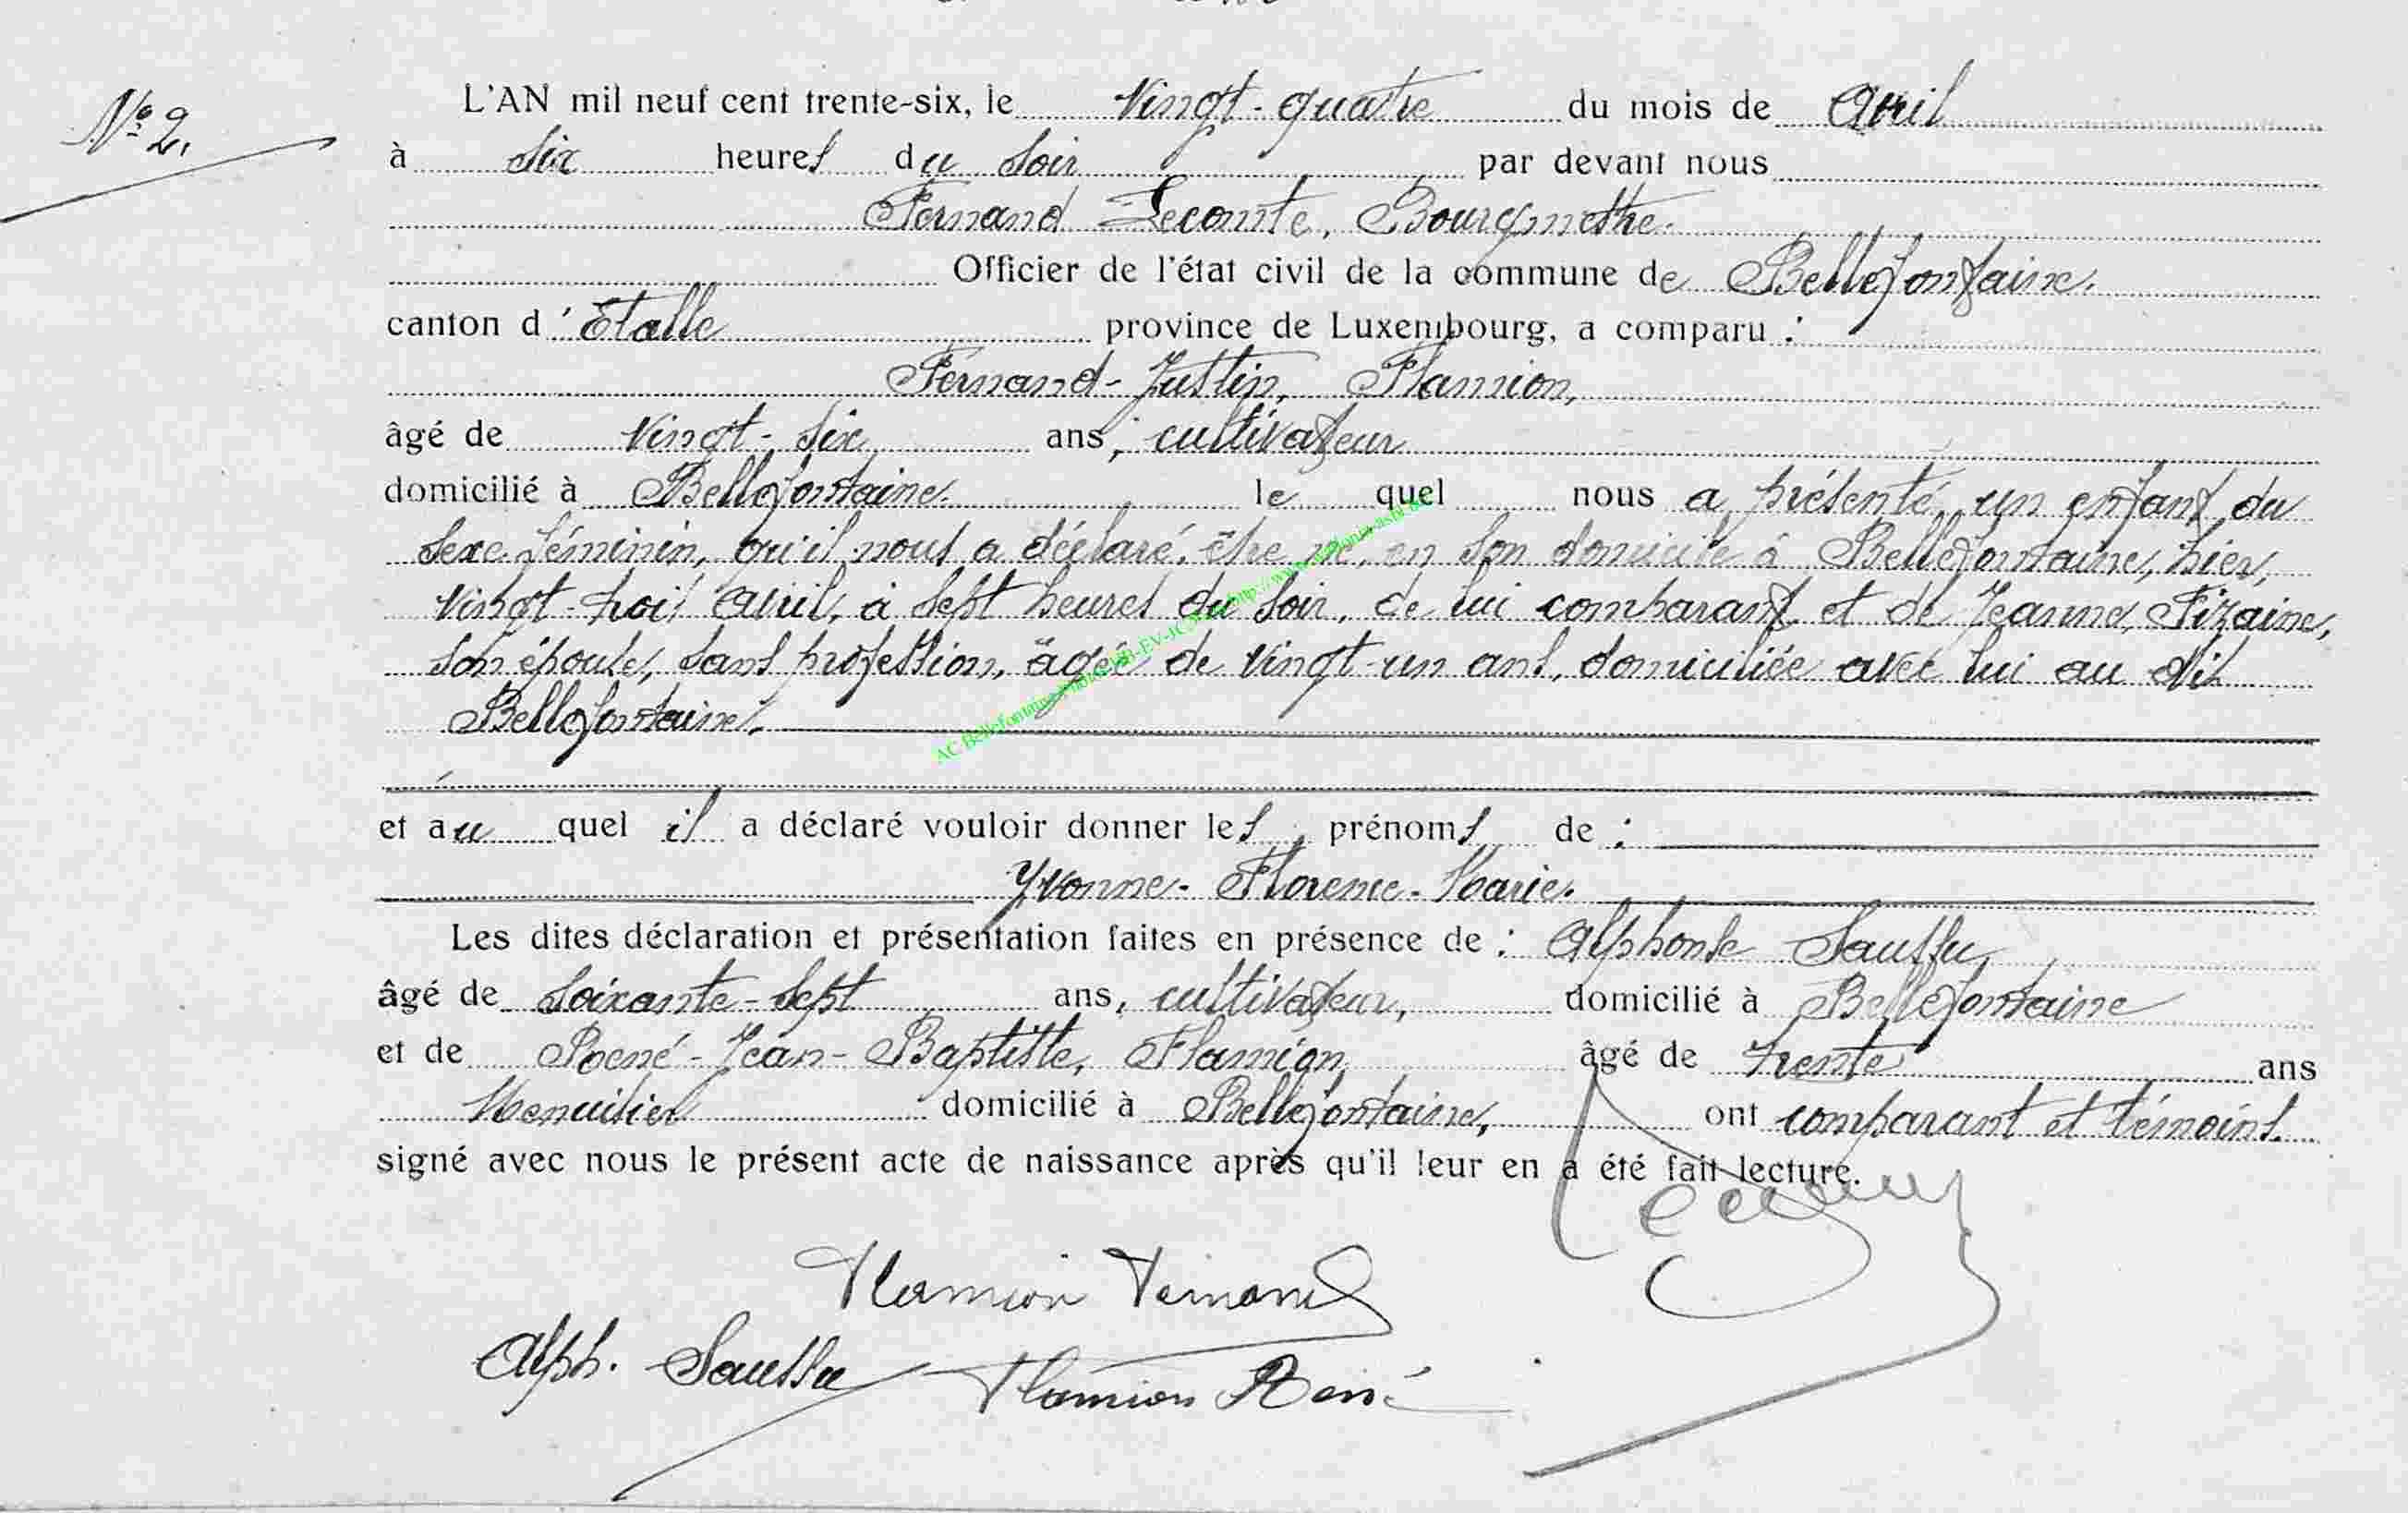 N° 2.
L'AN mil neuf cent trente-six, le Vingt-quatre du mois de Avril
à six heures du soir par devant nous
Fernand Lecomte, Bourgmestre.
Officier de l'état civil de la commune de Bellefontaine.
canton d'Etalle province de Luxembourg, a comparu :
Fernand-Justin, Flamion,
âgé de Vingt-six ans, cultivateur
domicilié à Bellefontaine. le quel nous a présenté un enfant du
sexe féminin, qu'il nous a déclaré être né en son domicile à Bellefontaine, hier,
vingt-trois avril, à sept heures du soir, de lui comparant et de Jeanne, Fizaine,
son épouse, sans profession, âgée de vingt-un ans, domiciliée avec lui au dit
Bellefontaine.
et au quel il a déclaré vouloir donner les prénoms de :
Yvonne-Florence-Marie.
Les dites déclaration et présentation faites en présence de : Alphonse Saussu,
âgé de soixante-sept ans, cultivateur, domicilié à Bellefontaine
et de René-Jean-Baptiste, Flamion, âgé de trente ans
Menuisier domicilié à Bellefontaine, ont comparant et témoins.
signé avec nous le présent acte de naissance après qu'il leur en a été fait lecture.
Flamion Fernand
Alph. Saussu Flamion René